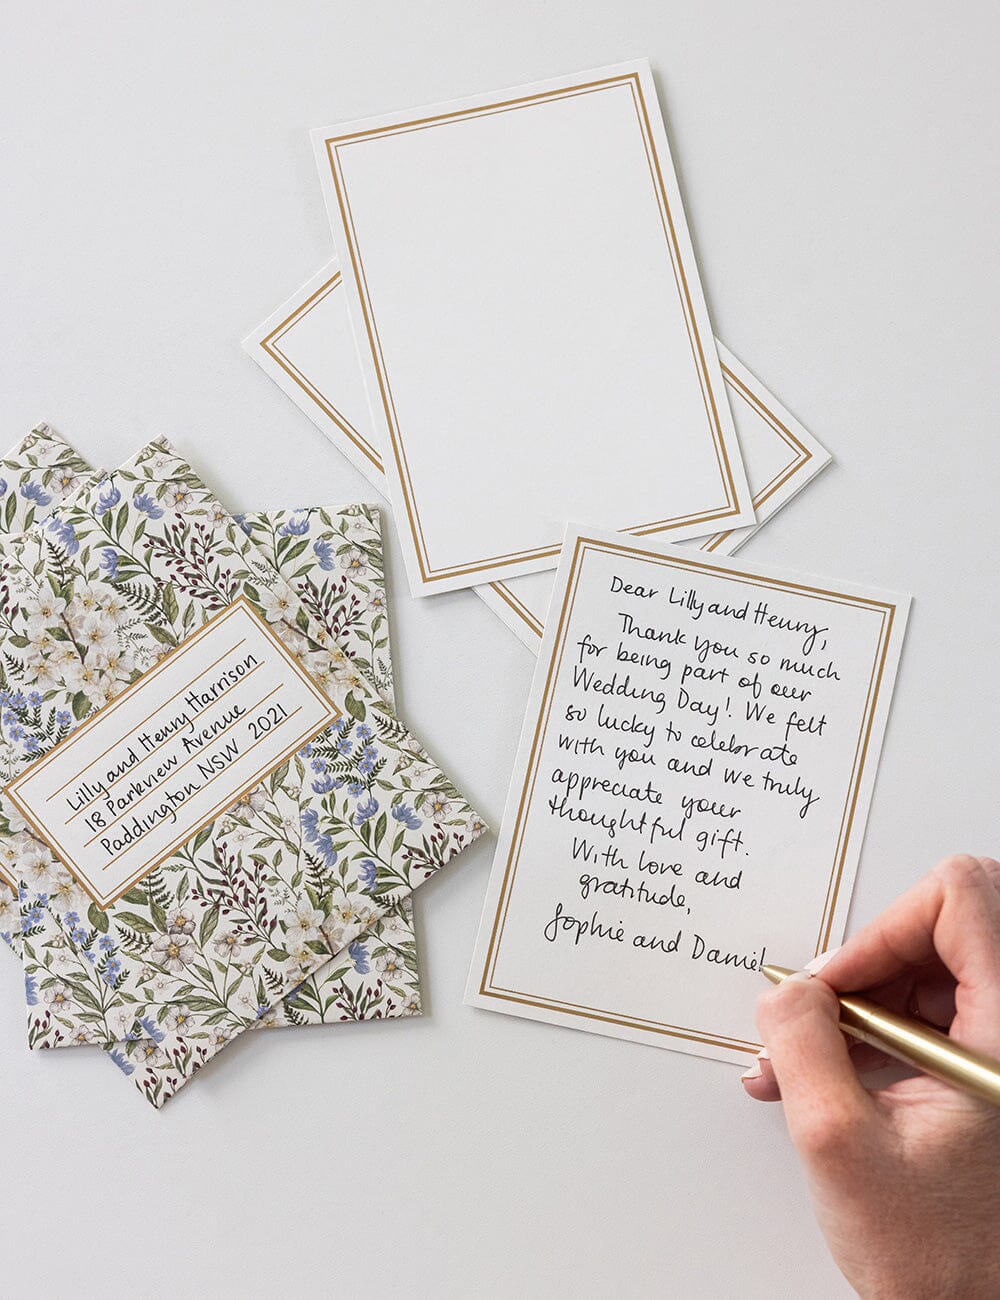 Dear Lilly and Henry,
Thank you so much
for being part of our
Wedding Day! We felt
so lucky to celebrate
with you and we truly
appreciate your
thoughtful gift.
With love and
gratitude,
Sophie and Daniel
Lilly and Henry Harrison
18 Parkview Avenue
Paddington NSW 2021